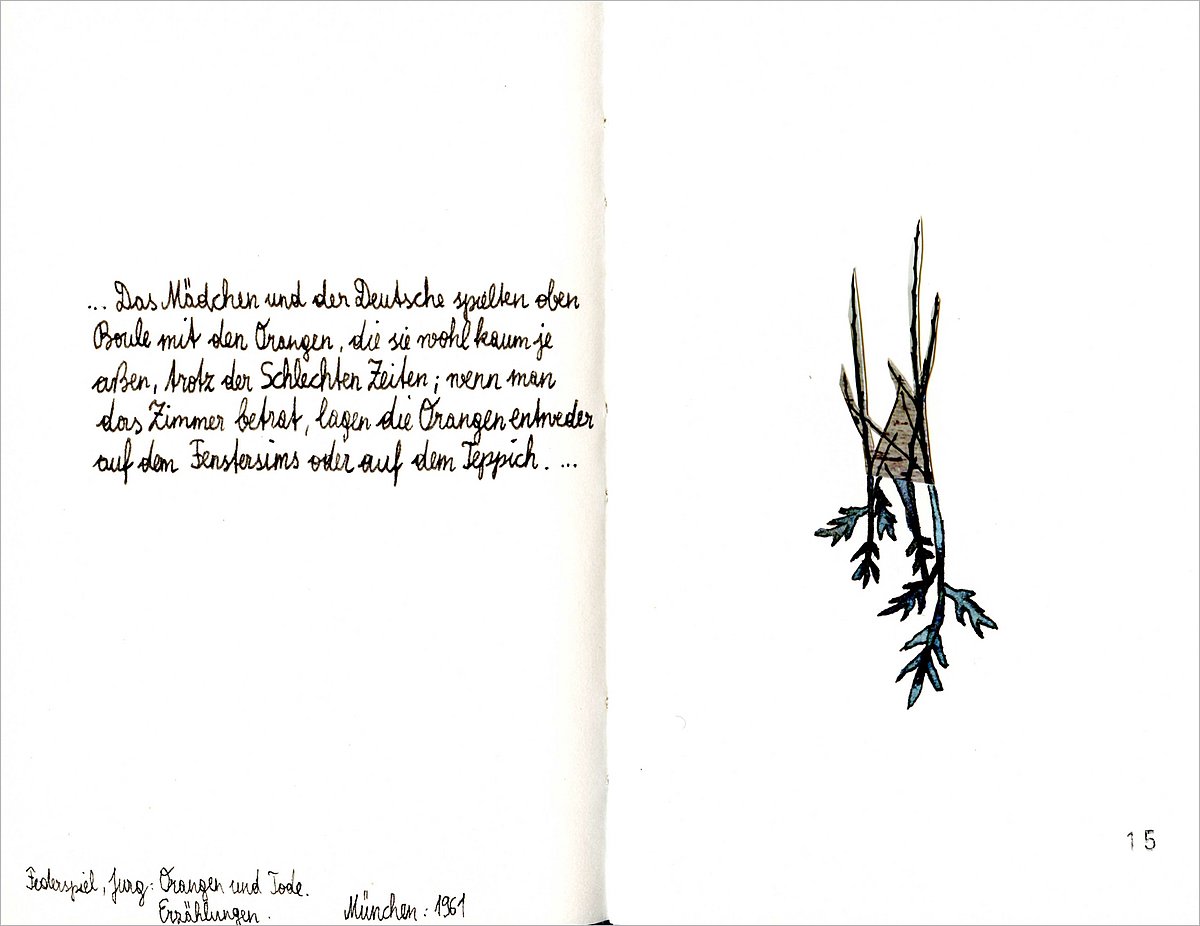 ... Das Mädchen und der Deutsche spielten oben
Boule mit den Orangen, die sie wohl kaum je
aßen, trotz der Schlechten Zeiten; wenn man
das Zimmer betrat, lagen die Orangen entweder
auf dem Fenstersims oder auf dem Teppich. ...
Federspiel, Jürg: Orangen und Tode.
Erzählungen.
München: 1961
15